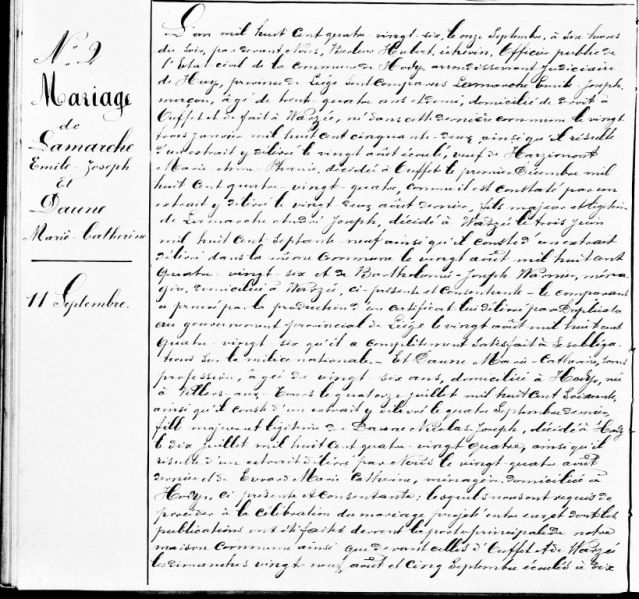 N.° 2
Mariage
de
Lamarche
Emile-Joseph
Et
Daune
Marie-Catherine
11 Septembre.
L'an mil huit Cent quatre-vingt-six, le onze Septembre, à Six heures
du Soir, par devant Nous, Hubert, échevin, Officier public de
l'Etat civil de la commune de Hody, arrondissement judiciaire
de Huy, province de Liége sont comparus Lamarche Emile Joseph,
maçon, âgé de trente-quatre ans et demi, domicilié de droit à
Ouffet et de fait à Warzée, né dans cette dernière commune le vingt
trois Janvier mil huit Cent cinquante-deux ainsi qu'il résulte
d'un extrait y délivré le vingt août écoulé, veuf de
Marie décédée à Ouffet le premier Décembre mil
huit Cent quatre-vingt-quatre, comme il est constaté par un
extrait y délivré le vingt deux août dernier, fils majeur et légitime
de Lamarche André Joseph, décédé à Warzée le trois Juin
mil huit Cent Septante-neuf ainsi qu'il conste d'un extrait
délivré dans la même Commune le vingt août mil huit cent
quatre-vingt six et de Joseph ména-
gère, domiciliée à Warzée, ci-présente et Consentante - le comparant
a prouvé par la production d'un certificat lui délivré par Duplicata
au gouvernement provincial de Liége le vingt août mil huit cent
quatre-vingt six qu'il a complètement satisfait à ses obliga-
tions sur la milice nationale. - Et Daune Marie-Catherine, sans
profession, âgée de vingt-six ans, domiciliée à Hody, née
à Villers-aux-Tours le quatorze juillet mil huit Cent Soixante,
ainsi qu'il conste d'un extrait y délivré le quatre Septembre dernier,
fille majeure et légitime de Daune Nicolas-Joseph, décédé à Hody
le dix juillet mil huit cent quatre-vingt quatre, ainsi qu'il
résulte d'un extrait délivré par Nous le vingt quatre août
dernier et de Evrard Marie Catherine, ménagère domiciliée à
Hody, ci présente et consentante; lesquels nous ont requis de
procéder à la célébration du mariage projeté entre eux et dont les
publications ont été faites devant la porte principale de notre
maison Commune ainsi que devant celles d'Ouffet et de Warzée
les dimanches vingt neuf août et cinq Septembre écoulés à dix